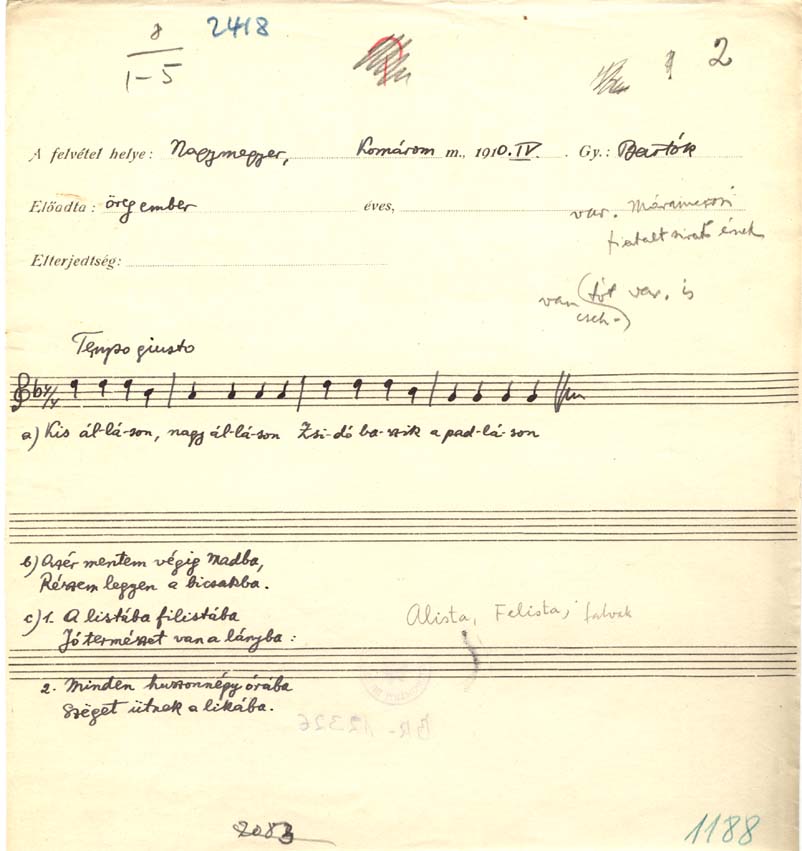 8 2418
1–5
2
A felvétel helye: Nagymegyer, Komárom m., 1910. IV. Gy.: Bartók
Előadta: öreg ember éves,
var. Máramarosi
fiatalt sirató ének
Elterjedtség:
van (tót var. is
cseh-)
Tempo giusto
4/4
a) Kis ál-lá-son, nagy ál-lá-son Zsi-dó ba-szik a pad-lá-son
b) Azér mentem végig Madba,
Részem legyen a bicsakba.
c) 1. A listába filistába Alista, Felista, falvak
Jó természet van a lányba:
2. Minden huszonnégy órába
Szeget ütnek a likába.
BR-12326
2083
1188